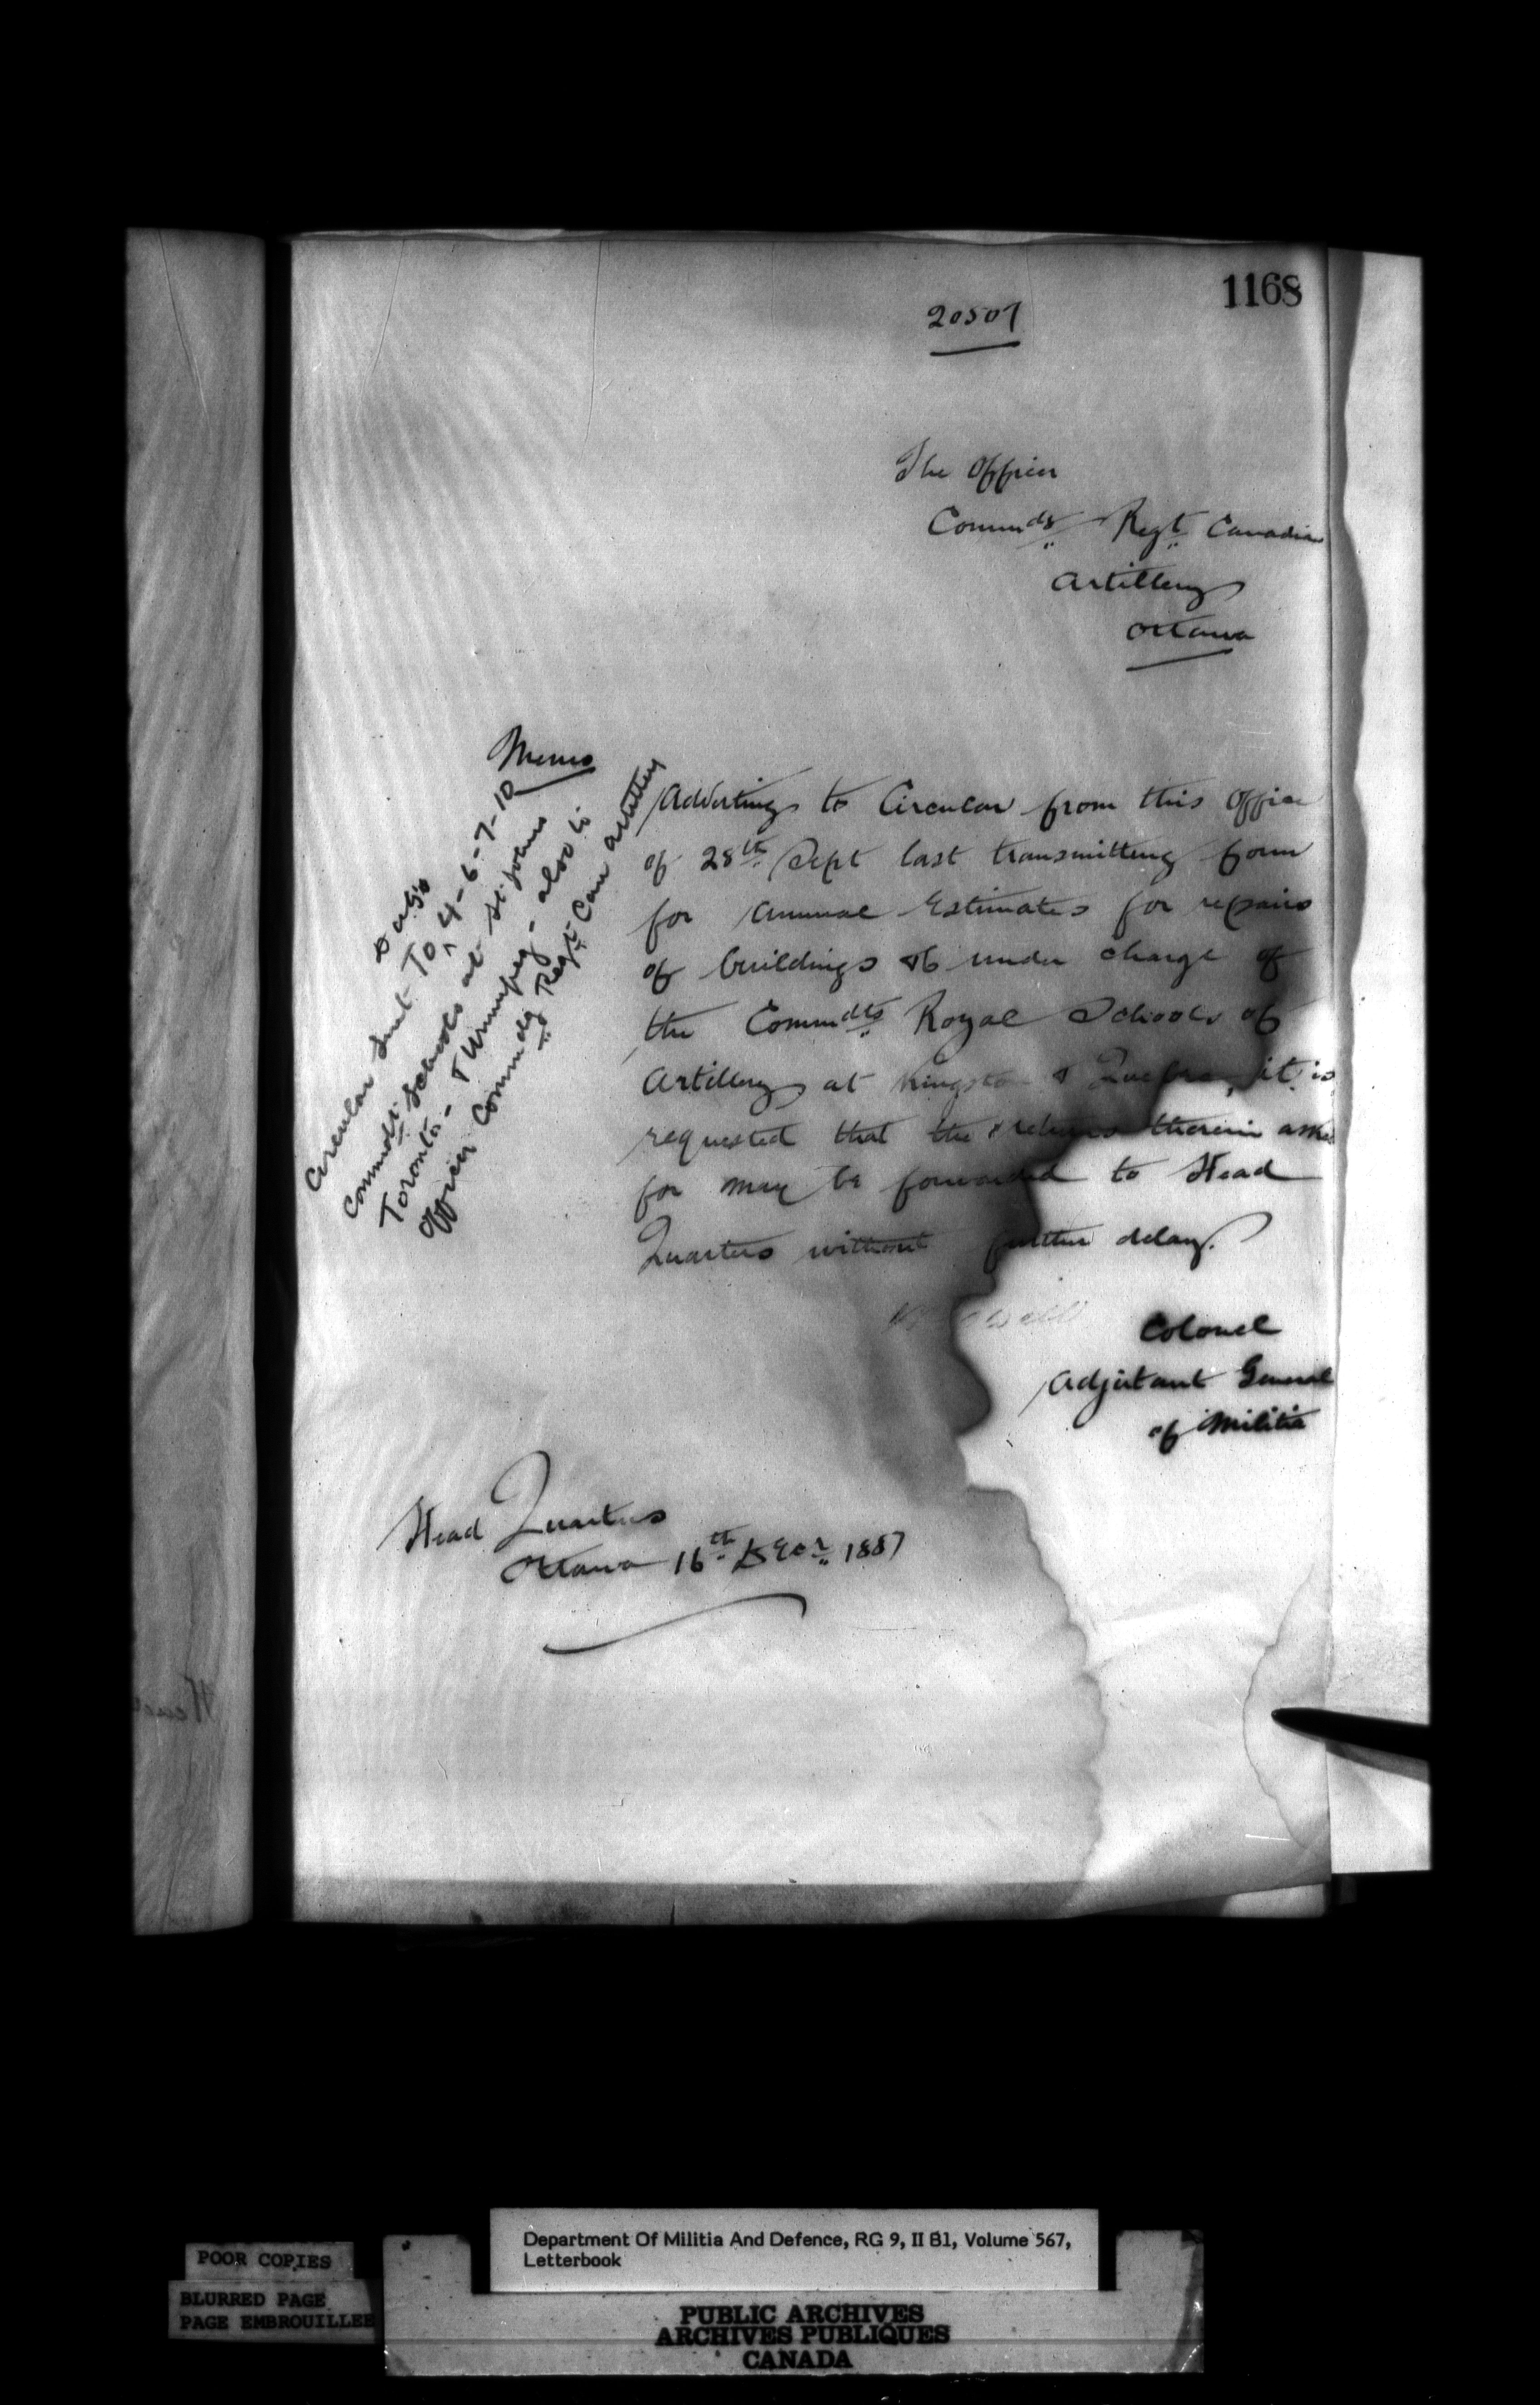 1168
20507
The Officer
Commdg Regt Canadian
Artillery
Ottawa
Memo
Circular sent To D.A.G's 4-6-7-10
Commdt Schools at St Johns
Toronto - & Winnipeg - also to
Officer Commdg Regt Can Artillery
Adverting to Circular from this Office
of 28th Sept last transmitting form
for Annual Estimates for repairs
of buildings &c under charge of
the Commdts Royal Schools of
Artillery at Kingston & Quebec, it is
requested that the returns therein asked
for may be forwarded to Head
Quarters without further delay.
Colonel
Adjutant General
of Militia
Head Quarters
Ottawa 16th Decr 1887
Department Of Militia And Defence, RG 9, II B1, Volume 567,
Letterbook
POOR COPIES
BLURRED PAGE
PAGE EMBROUILLEE
PUBLIC ARCHIVES
ARCHIVES PUBLIQUES
CANADA